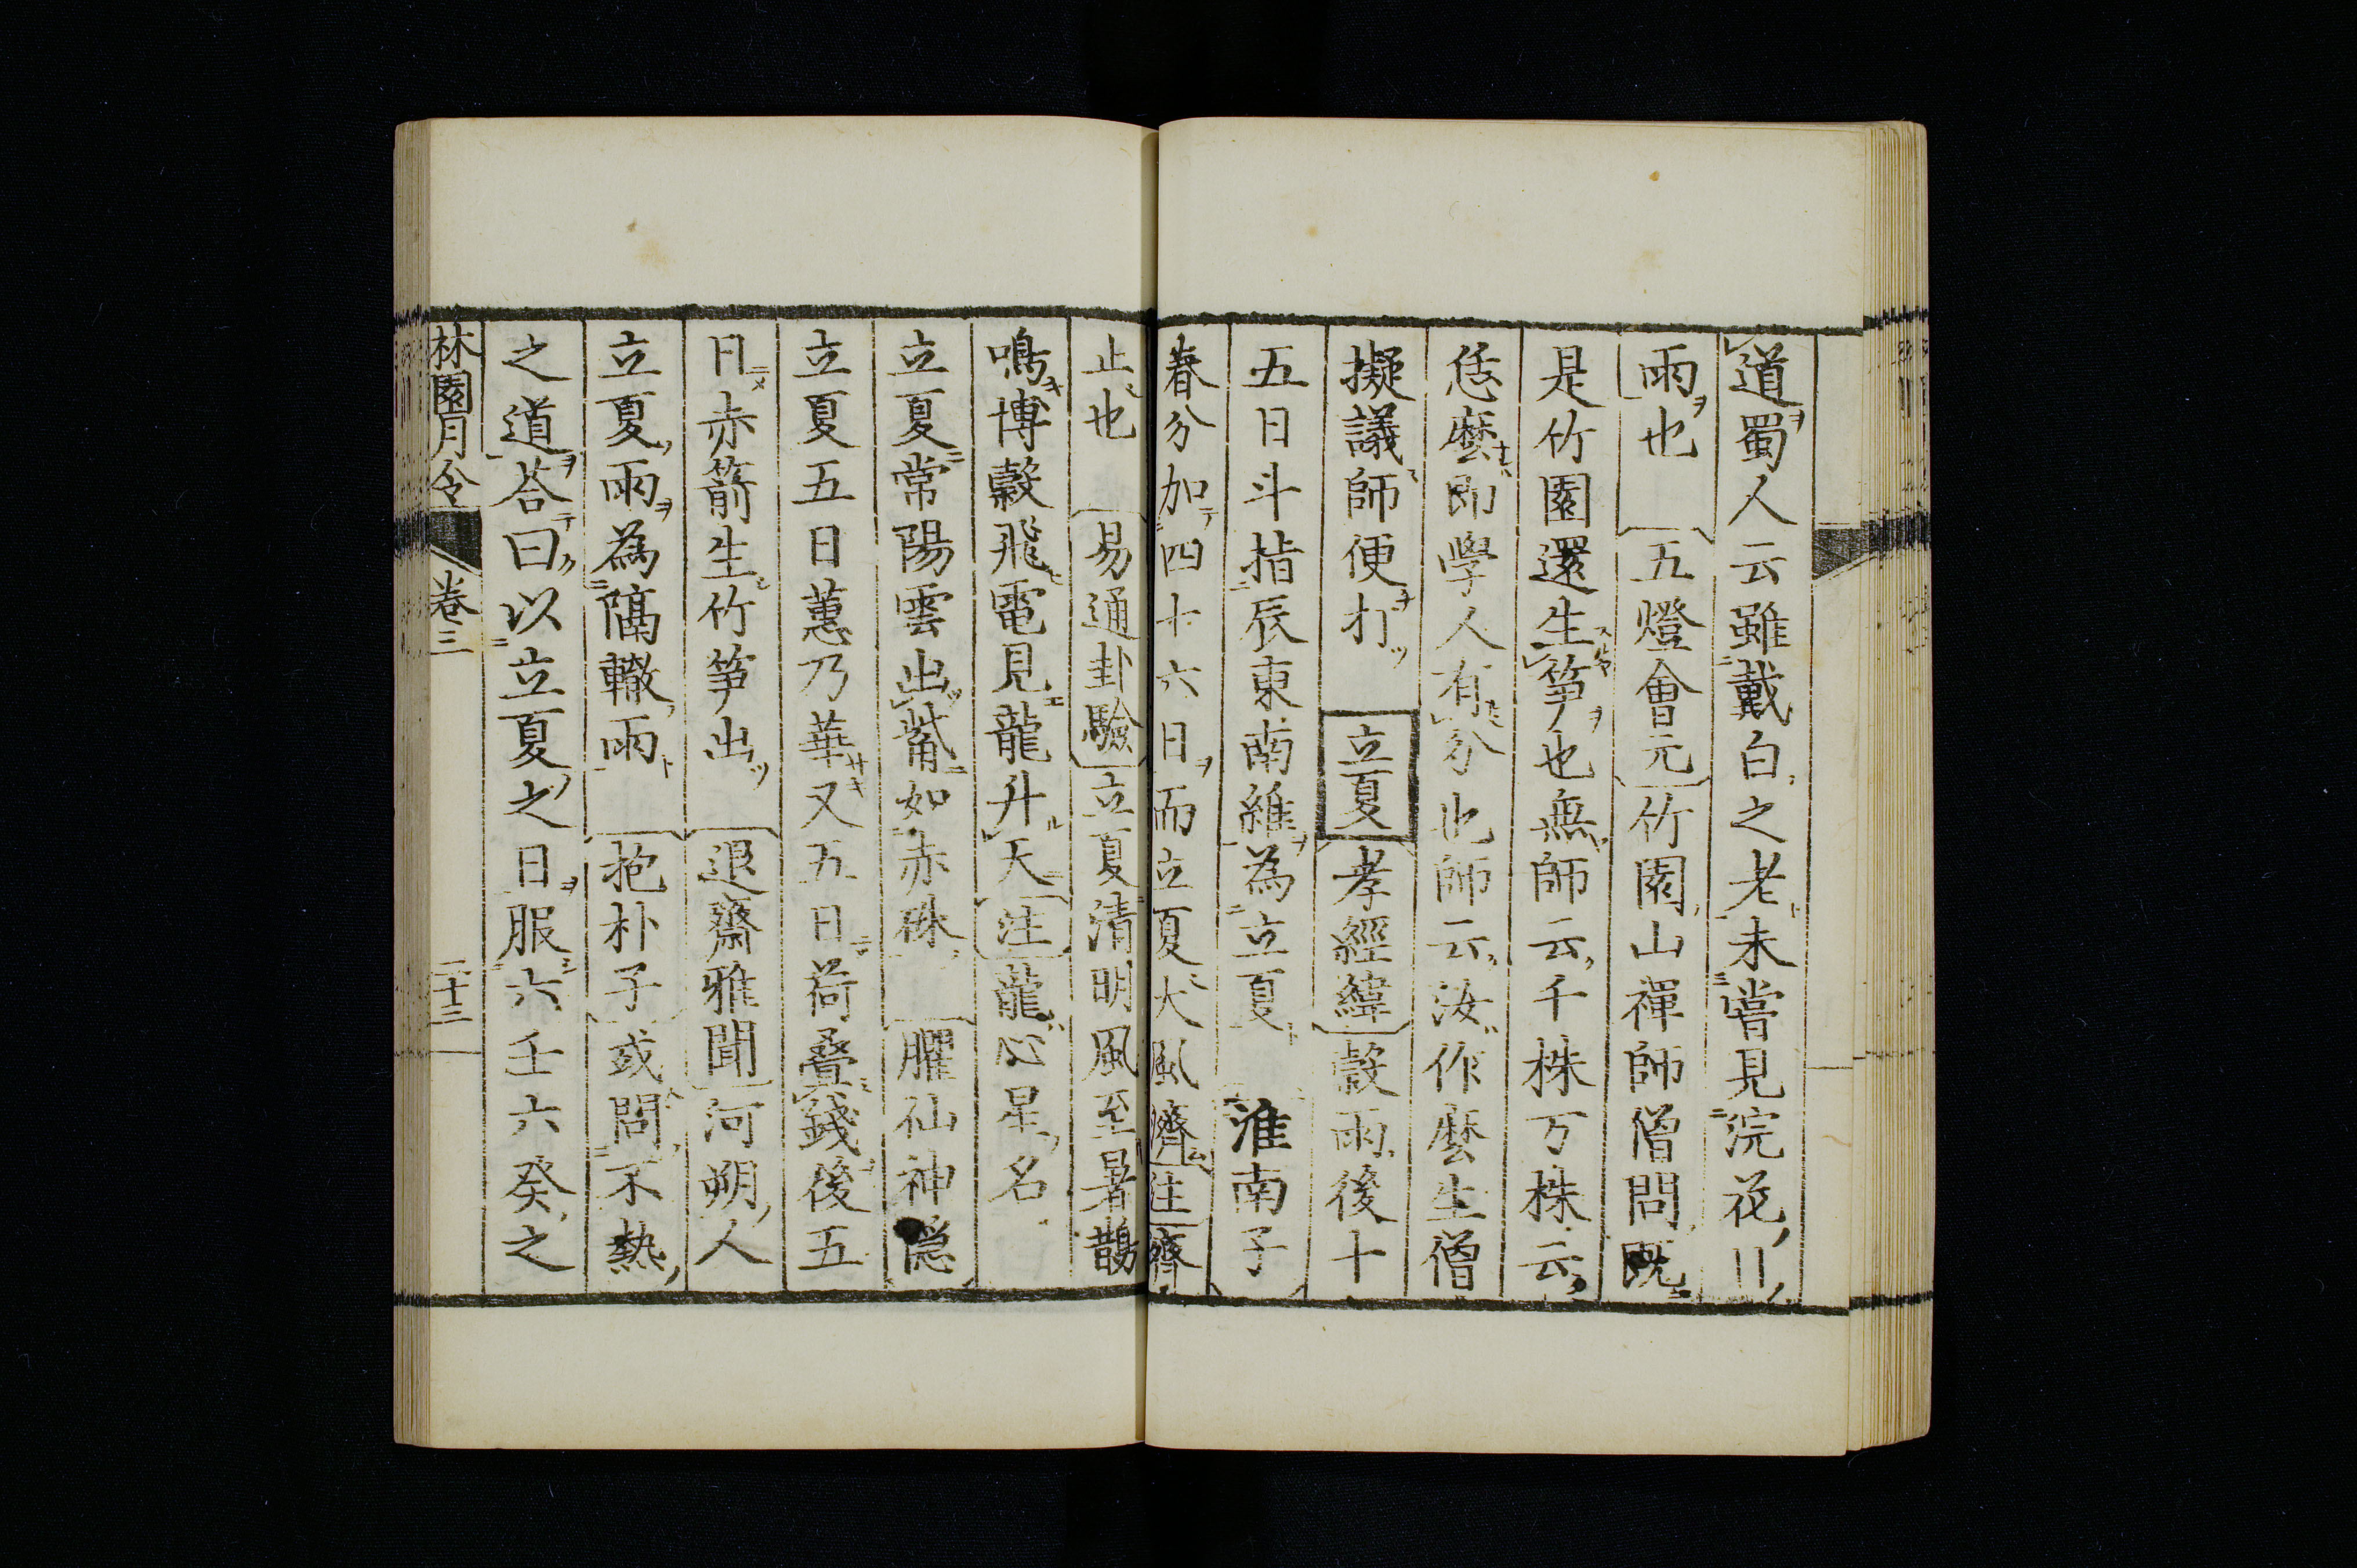 道蜀人云雖戴白之老未嘗見浣花川
雨也 五燈會元 竹園山禪師僧問既
是竹園還生筍也無師云千株万株云
恁麼即學人有分也師云汝作麼生僧
擬議師便打 立夏 孝經緯 穀雨後十
五日斗指辰東南維為立夏 淮南子
春分加四十六日而立夏大風濟 注 濟
止也 易通卦驗 立夏清明風至暑鵲
鳴博穀飛電見龍升天 注 龍心星名
立夏常陽雲出觜如赤珠 臞仙神隱
立夏五日蕙乃華又五日荷疊錢後五
日赤箭生竹筍出 退齋雅聞 河朔人
立夏雨為隔轍雨 抱朴子 或問不熱
之道荅曰以立夏之日服六壬六癸之
林園月令 卷三 二十三